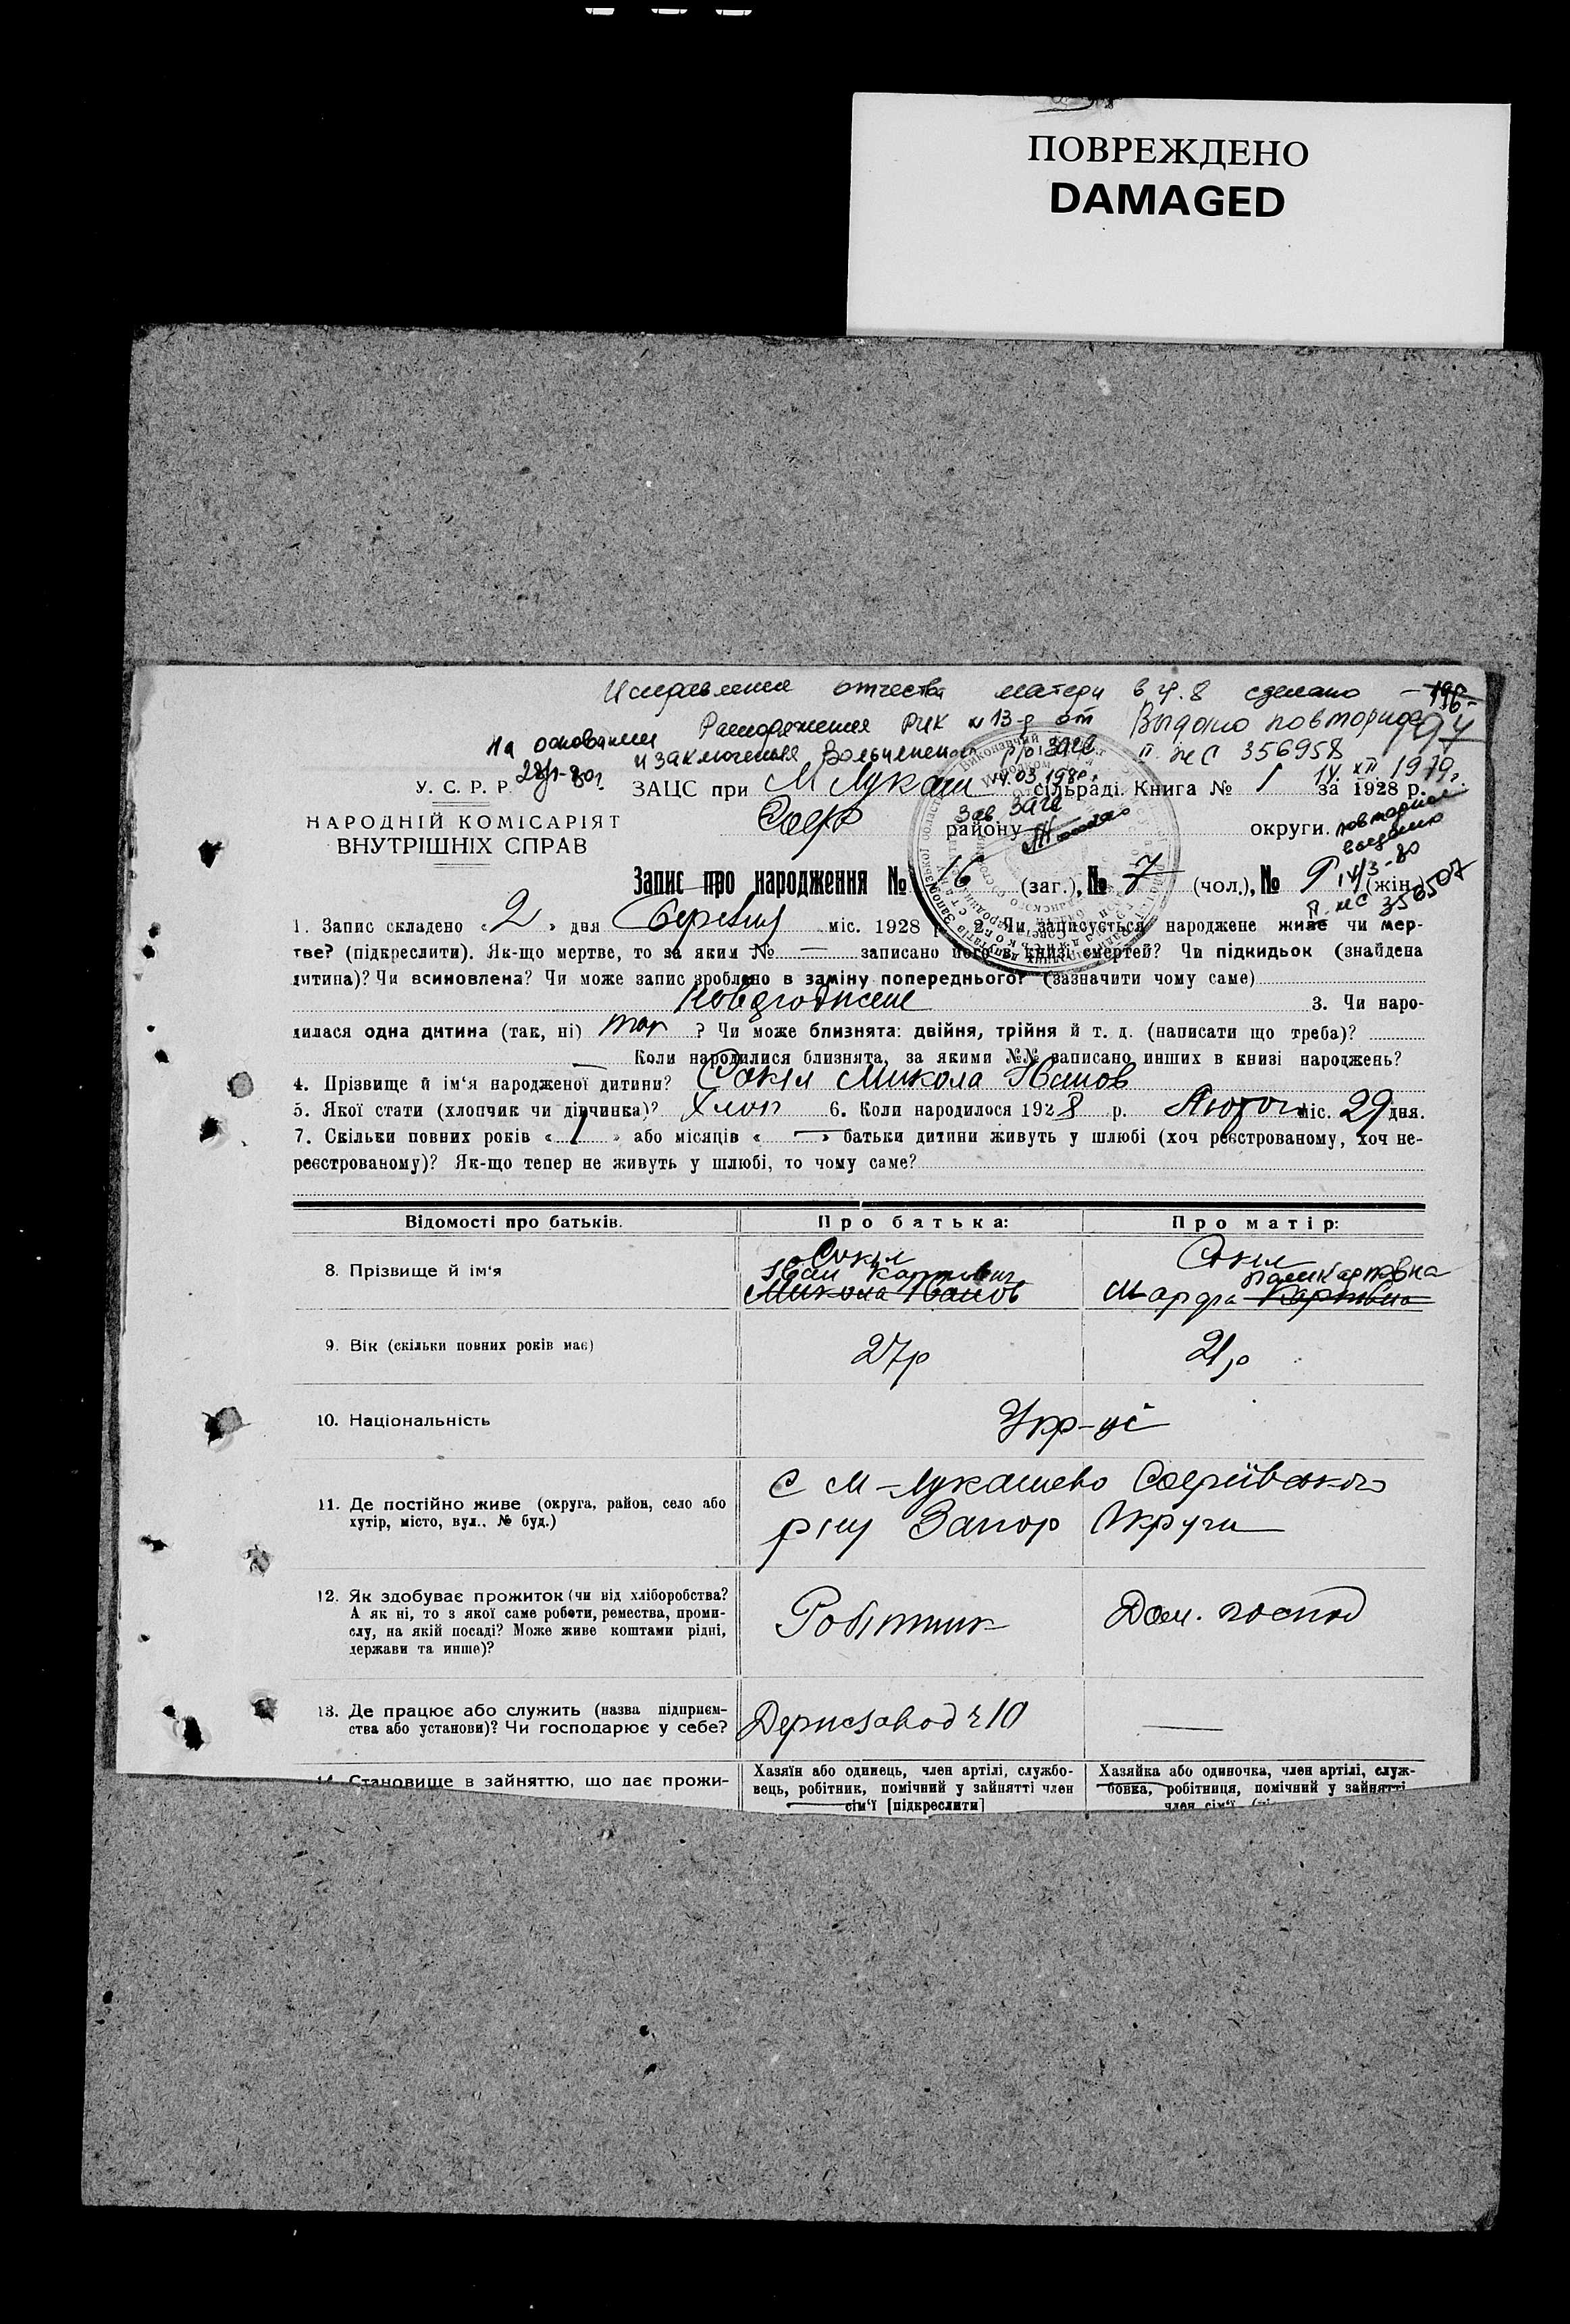 ПОВРЕЖДЕНО
DAMAGED
Исправления отчества матери в гр. 8 сделано
на основании Распоряжения РИК №13-д от
28/І-80г. и заключения р/о загс 14.03.1980г.
Зав. загс
Выдано повторное
ІІ ЖС 356958
ІV. ХІІ 1979г.
повторное
выдано
ІV/3-80
У. С. Р. Р.
НАРОДНІЙ КОМІСАРІЯТ
ВНУТРІШНІХ СПРАВ
ЗАЦС при М Лукаш сільраді. Книга № 1 за 1928 р.
Соф району округи.
Запис про народження № 16 (заг.), № 7 (чол.), № 9 (жін.)
1. Запис складено «2» дня Березня міс. 1928 р. 2. Чи записується народжене живе чи мер-
тве? (підкреслити). Як-що мертве, то за яким № — записано його в книзі смертей? Чи підкидьок (знайдена
дитина)? Чи всиновлена? Чи може запис зроблено в заміну попереднього? (зазначити чому саме)
3. Чи наро-
дилася одна дитина (так, ні) так ? Чи може близнята: двійня, трійня й т. д. (написати що треба)?
— Коли народилися близнята, за якими №№ записано инших в книзі народжень?
4. Прізвище й ім'я народженої дитини? Сокіл Микола Іванов
5. Якої стати (хлопчик чи дівчинка)? Хлоп 6. Коли народилося 1928 р. Лютого міс. 29 дня.
7. Скільки повних років «1» або місяців «—» батьки дитини живуть у шлюбі (хоч реєстрованому, хоч не-
реєстрованому)? Як-що тепер не живуть у шлюбі, то чому саме?
Відомості про батьків. Про батька: Про матір:
8. Прізвище й ім'я
Сокіл
Іван Карпович
Микола Іванов
Сокіл
Поликарповна
Марфа Карповна
9. Вік (скільки повних років має) 27р 21р
10. Національність Укр-ці
11. Де постійно живе (округа, район, село або
хутір, місто, вул., № буд.)
С М-Лукашево Софіївського
р-ну Запор Округи
12. Як здобуває прожиток (чи від хліборобства?
А як ні, то з якої саме роботи, ремества, проми-
слу, на якій посаді? Може живе коштами рідні,
держави та инше)?
Робітник Дом. господ
13. Де працює або служить (назва підприєм-
ства або установи)? Чи господарює у себе?
Держзавод ч 10 —
14. Становище в зайняттю, що дає прожи-
Хазяїн або одинець, член артілі, службо-
вець, робітник, помічний у зайнятті член
сім'ї [підкреслити]
Хазяйка або одиночка, член артілі, служ-
бовка, робітниця, помічний у зайнятті
член сім'ї